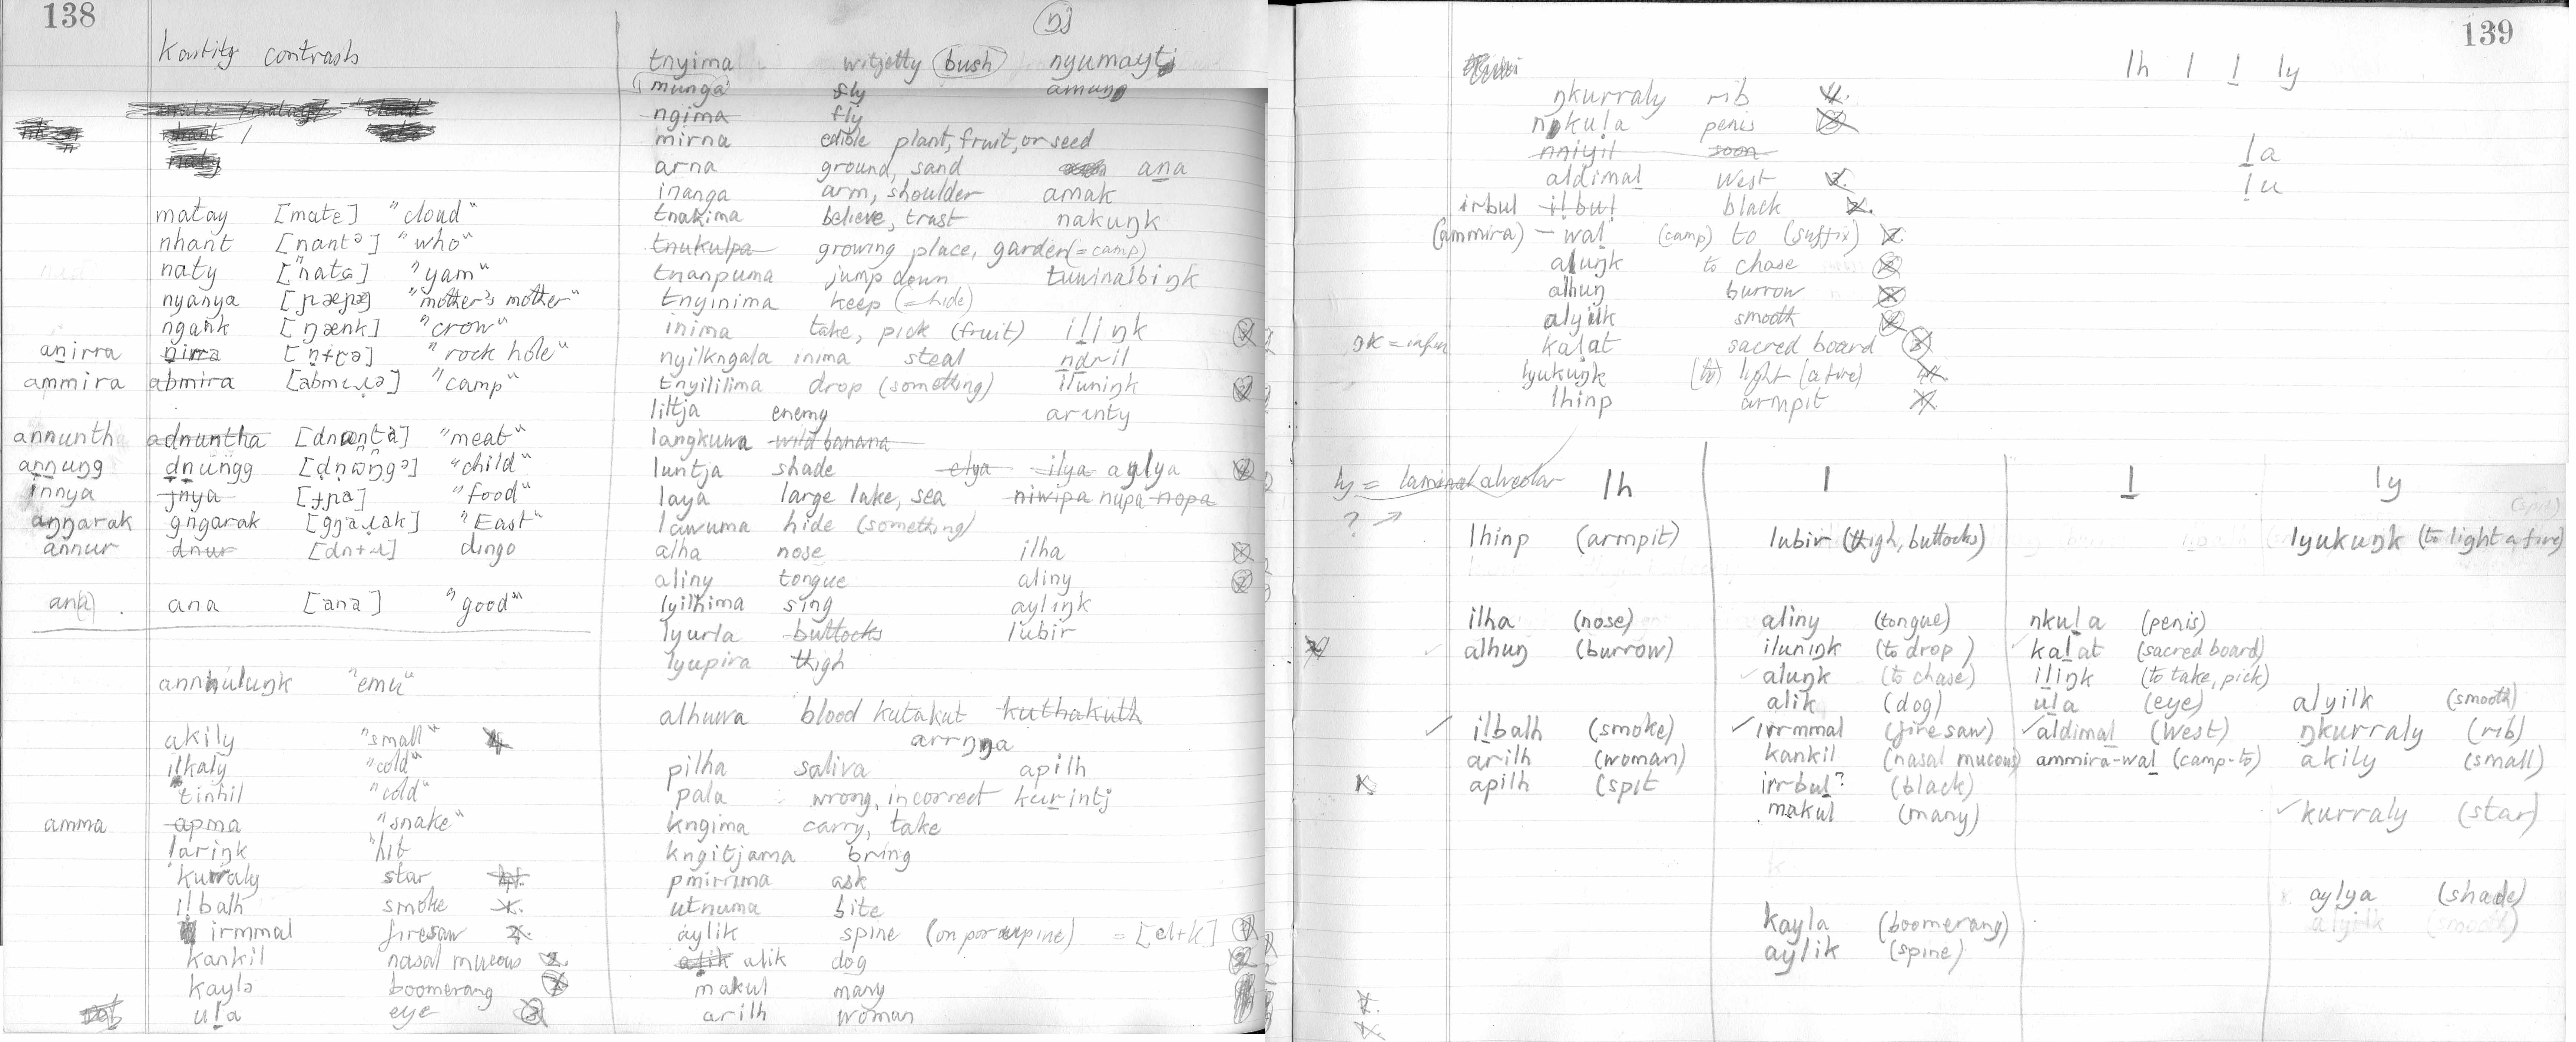 138
Kaititj contrasts
matay [mate] "cloud"
nhant [n̪antə] "who"
naty "yam"
nyanya "mother's mother"
ngank [ŋænk] "crow"
aṉirra ṉirra "rock hole"
ammira abmira "camp"
annuntha adnuntha "meat"
aṉṉung ḏṉungg "child"
innya jnya "food"
aŋŋarak gŋgarak "East"
annur dnur dingo
an(a) ana [ana] "good"
annhuluŋk "emu"
akily "small"
iḻkaly "cold"
tinhil "cold"
amma apma "snake"
lariŋk "hit
kurraly star
iḻbalh smoke
irmmal firesaw
kankil nasal mucous
kayla boomerang
uḻa eye
ŋj
tnyima witjetty bush nyumaytj
munga fly amuŋ
ngima fly
mirna edible plant, fruit, or seed
arna ground, sand aṉa
inanga arm, shoulder amak
tnakima believe, trust nakuŋk
tnukulpa growing place, garden (=camp)
tnanpuma jump down tuwinalbiŋk
tnyinima keep (=hide)
inima take, pick (fruit) iḻiŋk
nyilkngala inima steal ṉḏril
tnyililima drop (something) iluniŋk
liltja enemy arinty
langkuwa wild banana
luntja shade elya ilya aylya
laya large lake, sea niwipa nupa nopa
lawuma hide (something)
alha nose ilha
aliny tongue aliny
lyilhima sing ayliŋk
lyurla buttocks lubir
lyupira thigh
alhuwa blood kutakut kuthakuth
arrŋŋa
pilha saliva apilh
pala wrong, incorrect kuṟintj
kngima carry, take
kngitjama bring
pmirrima ask
utnuma bite
aylik spine (on porcupine)
alik alik dog
makul many
arilh woman
139
lh l ḻ ly
ŋkurraly rib
nkuḻa penis
nniyil soon
aldimaḻ West
irbul iḻbuḻ black
(ammira) - waḻ (camp) to (suffix)
aluŋk to chase
alhuŋ burrow
alyilk smooth
ŋk = infin kaḻat sacred board
lyukuŋk (to) light (a fire)
lhinp armpit
ḻa
ḻu
ly = laminal alveolar
? →
lh l ḻ ly
lhinp (armpit) lubir (thigh, buttocks) lyukuŋk (to light a fire)
ilha (nose) aliny (tongue) nkuḻa (penis)
alhuŋ (burrow) iluniŋk (to drop) kaḻat (sacred board)
aluŋk (to chase) iḻiŋk (to take, pick)
alik (dog) uḻa (eye) alyilk (smooth)
iḻbalh (smoke) irrmmal (fire saw) aldimaḻ (West) ŋkurraly (rib)
arilh (woman) kankil (nasal mucous) ammira-waḻ (camp-to) akily (small)
apilh (spit irrbuḻ? (black)
makul (many) kurraly (star)
aylya (shade)
kayla (boomerang) alyilk (smooth)
aylik (spine)